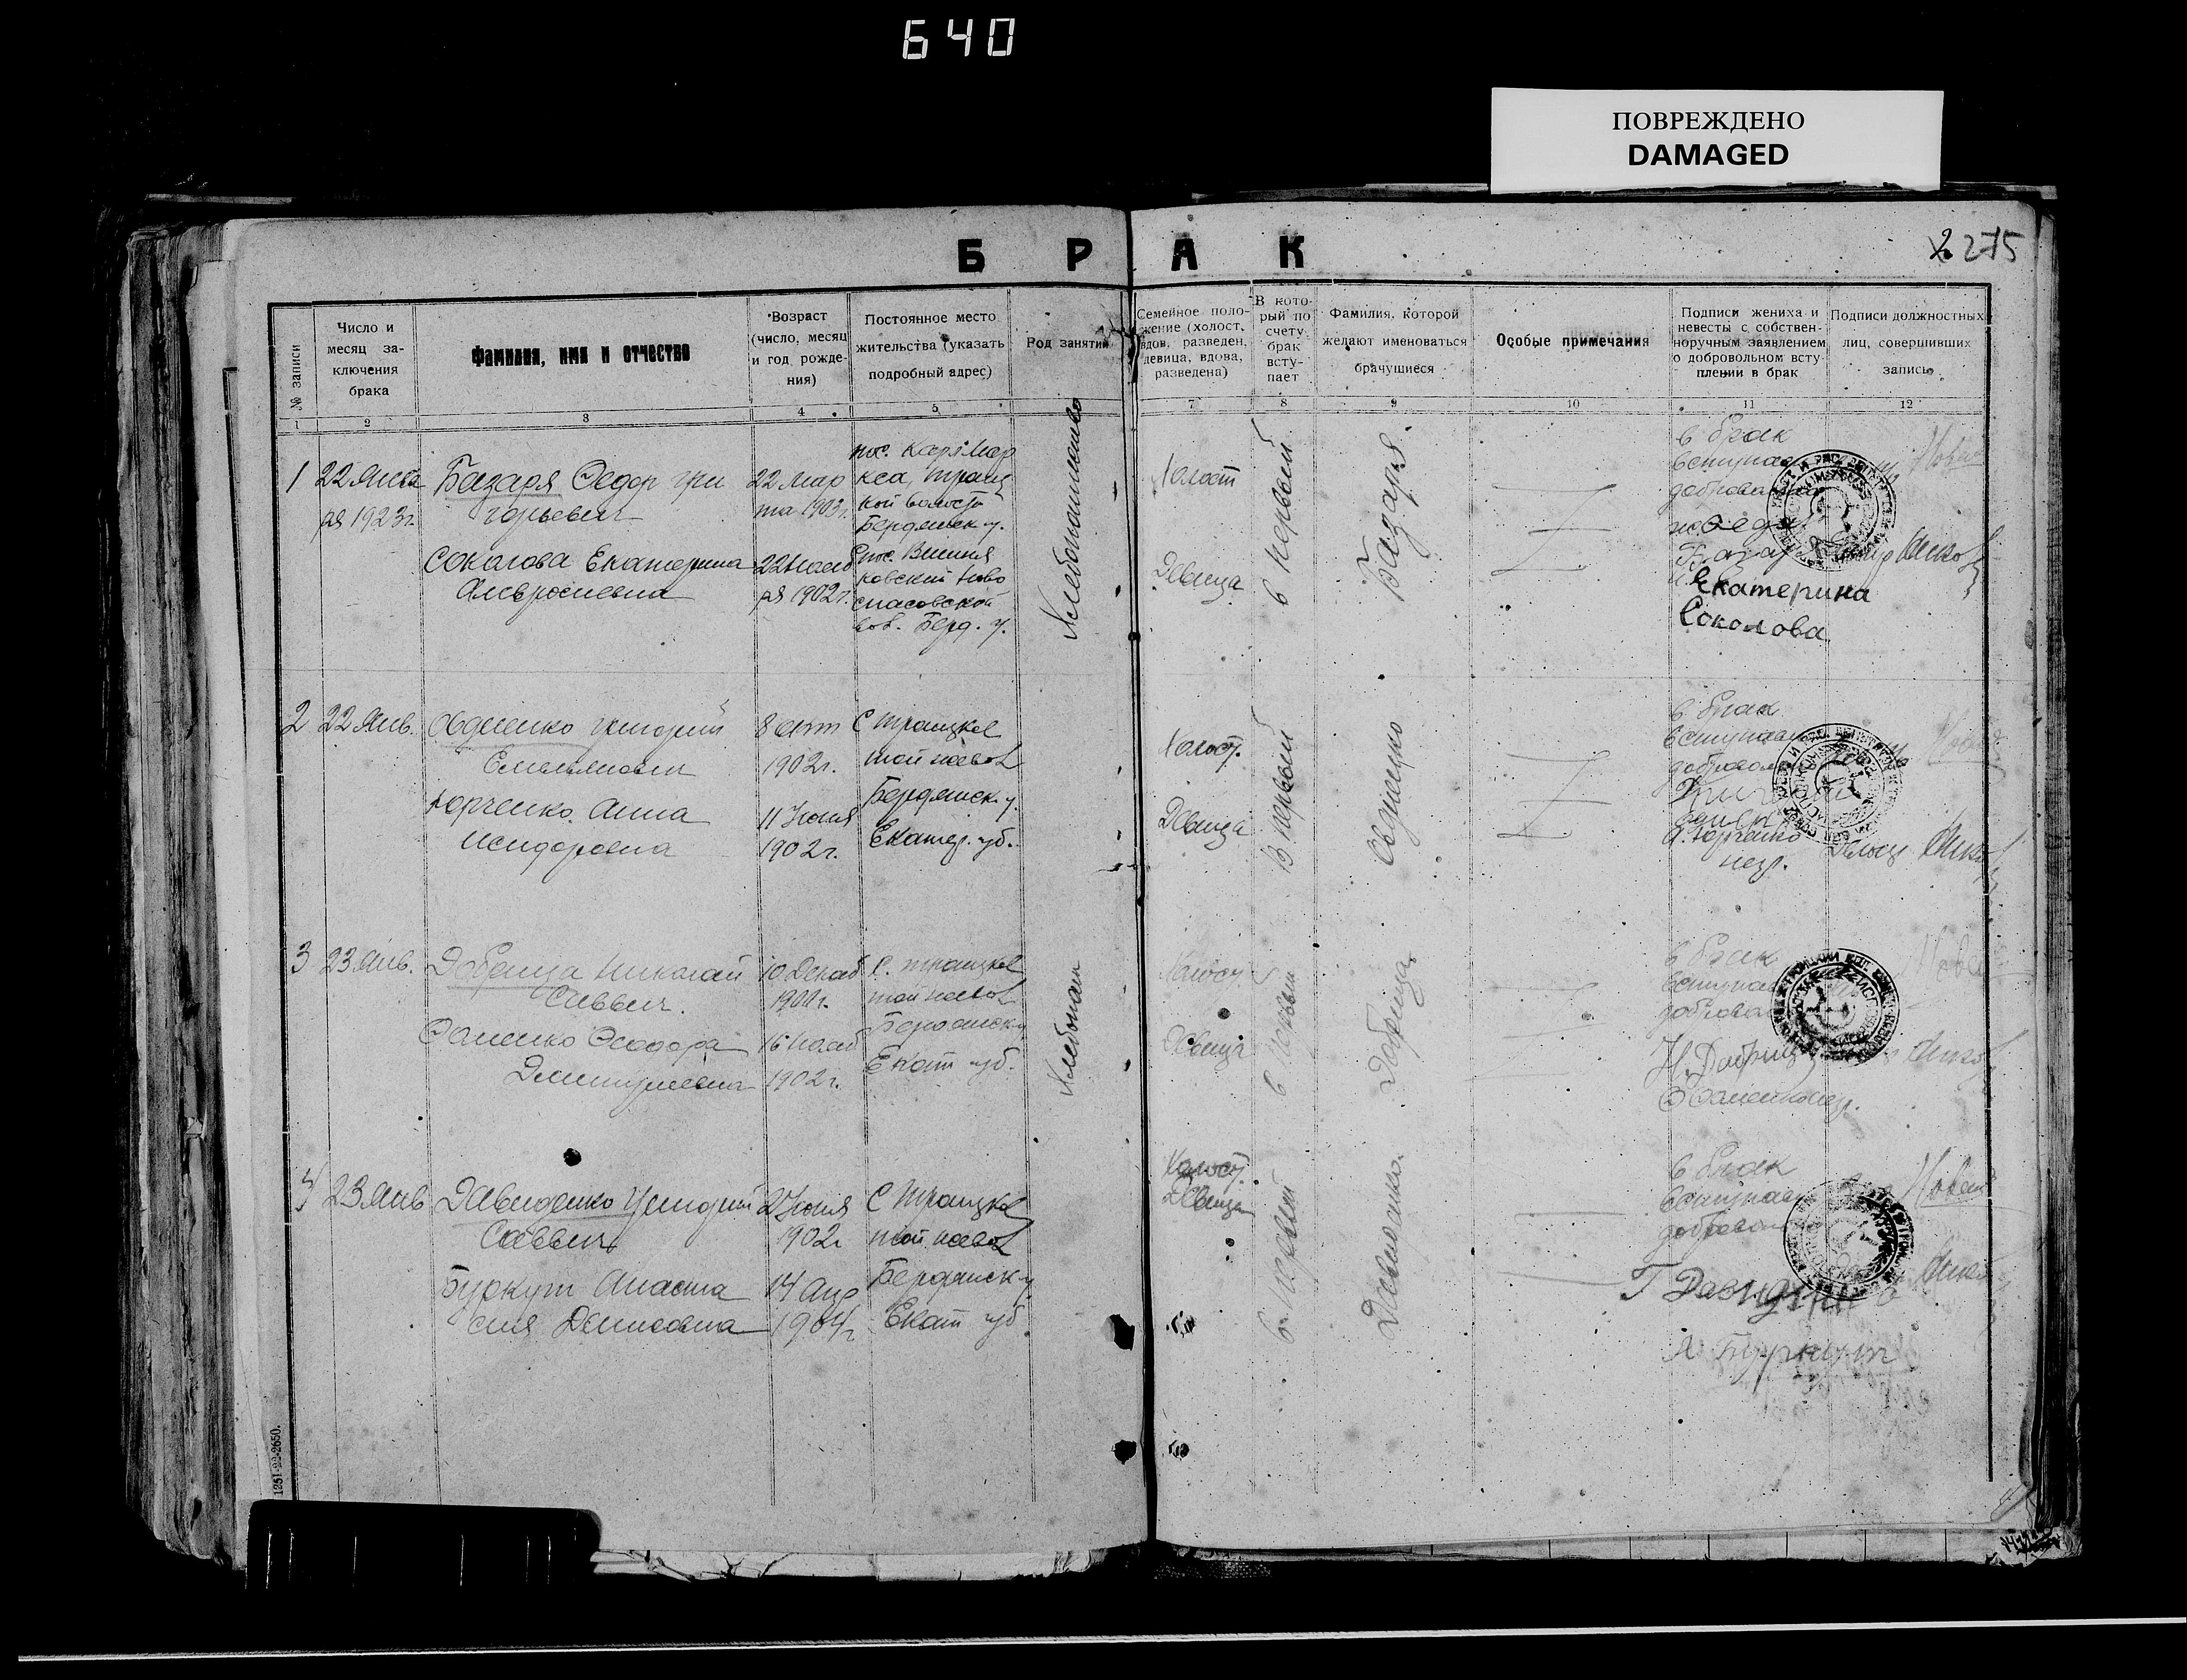 640
ПОВРЕЖДЕНО
DAMAGED
БРАК
2 275
№ записи
Число и
месяц за-
ключения
брака
Фамилия, имя и отчество
Возраст
(число, месяц
и год рожде-
ния)
Постоянное место
жительства (указать
подробный адрес)
Род занятий
Семейное поло-
жение (холост,
вдов, разведен,
девица, вдова,
разведена)
В кото-
рый по
счету
брак
всту-
пает
Фамилия, которой
желают именоваться
брачущиеся
Особые примечания
Подписи жениха и
невесты с собствен-
норучным заявлением
о добровольном всту-
плении в брак
Подписи должностных
лиц, совершивших
запись
1 2 3 4 5 7 8 9 10 11 12
1
22 Янва
ря 1923г.
Базаря Федор Гри
горьевич
Соколова Екатерина
Амвросиевна
22 мар
та 1903г.
22 нояб
ря 1902г.
пос. Карл Мар
кса, Троиц
кой волости
Бердянск у.
пос.
ковский Ново
спасовской
вол. Берд. у.
Хлебопашество
Холост
Девица
в первый
Базаря.
в брак
вступаю
Екатерина
Соколова
2
22 Янв.
Овдиенко Григорий
Емельянович
Юрченко Анна
Исидоровна
8 окт
1902г.
11 Июня
1902г.
С Троицкое
той же вол
Бердянск у.
Екатер. губ.
Холост.
Девица
В первый
Овдиенко
в брак
вступаю
А. Юрченко
негр.
3
23 Янв.
Добрица Николай
Саввич.
Фоменко Феодора
Дмитриевна
10 Декаб
16 нояб
1902г.
С. Троицкое
той же вол
Бердянск у
Екат губ.
Хлебопаш
Холост.
Девица
в первый
Добрица.
в брак
вступаю
Н. Добриц
4
23 Янв
Давиденко Григорий
Саввич
Буркут Анаста
сия Денисовна
2 Июня
1902г
14 Апр
1904г
С Троицкое
той же вол
Бердянск у
Екат губ
Холост.
Девица
в первый
Давиденко.
в брак
вступаю
Г Давиденко
А Буркут
1251-22-2650.